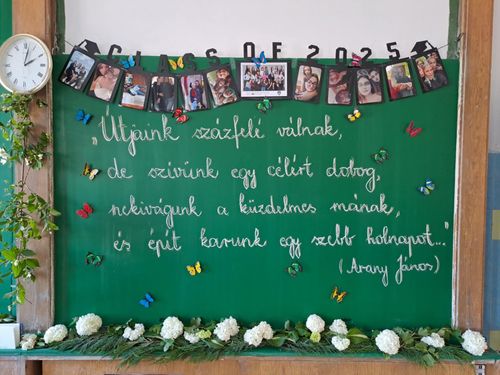 CLASS OF 2025
„Útjaink százfelé válnak,
de szívünk egy célért dobog,
nekivágunk a küzdelmes mának,
és épít karunk egy szebb holnapot..."
(Arany János)